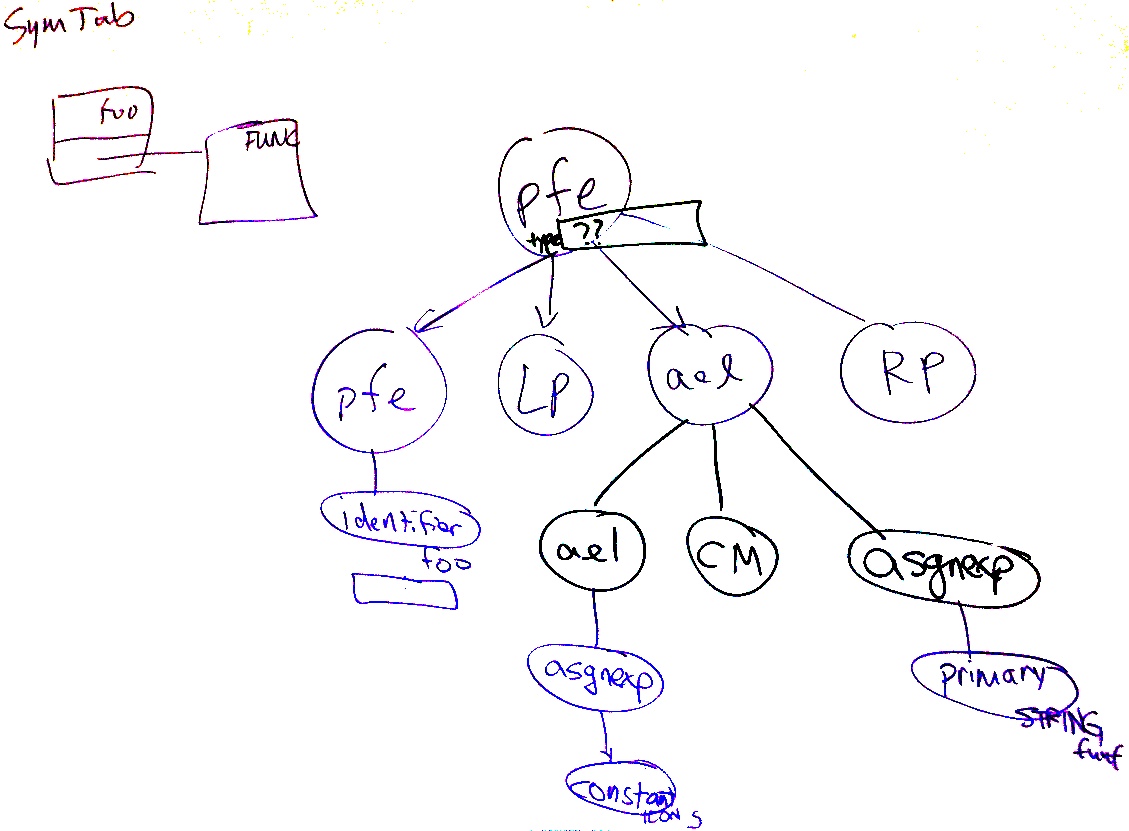 SymTab
foo
FUNC
pfe
type ??
pfe
LP
ael
RP
identifier
foo
ael
CM
asgnexp
asgnexp
primary
STRING
constant
ICON 5